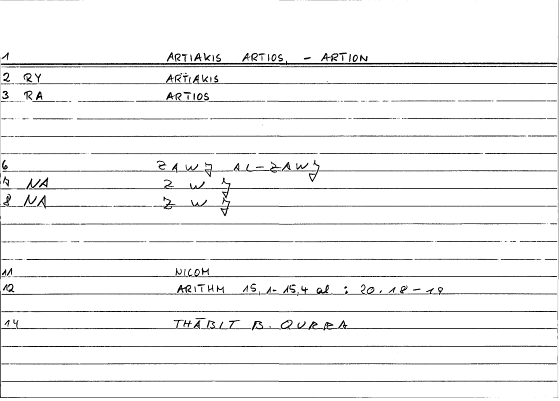 1 ARTIAKIS ARTIOS, - ARTION
2 RY ARTIAKIS
3 RA ARTIOS
6 ZAWǦ AL-ZAWǦ
7 NA Z W Ǧ
8 NA Z W Ǧ
11 NICOM
12 ARITHM 15,1-15,4 al : 20.18-19
14 THĀBIT B. QURRA